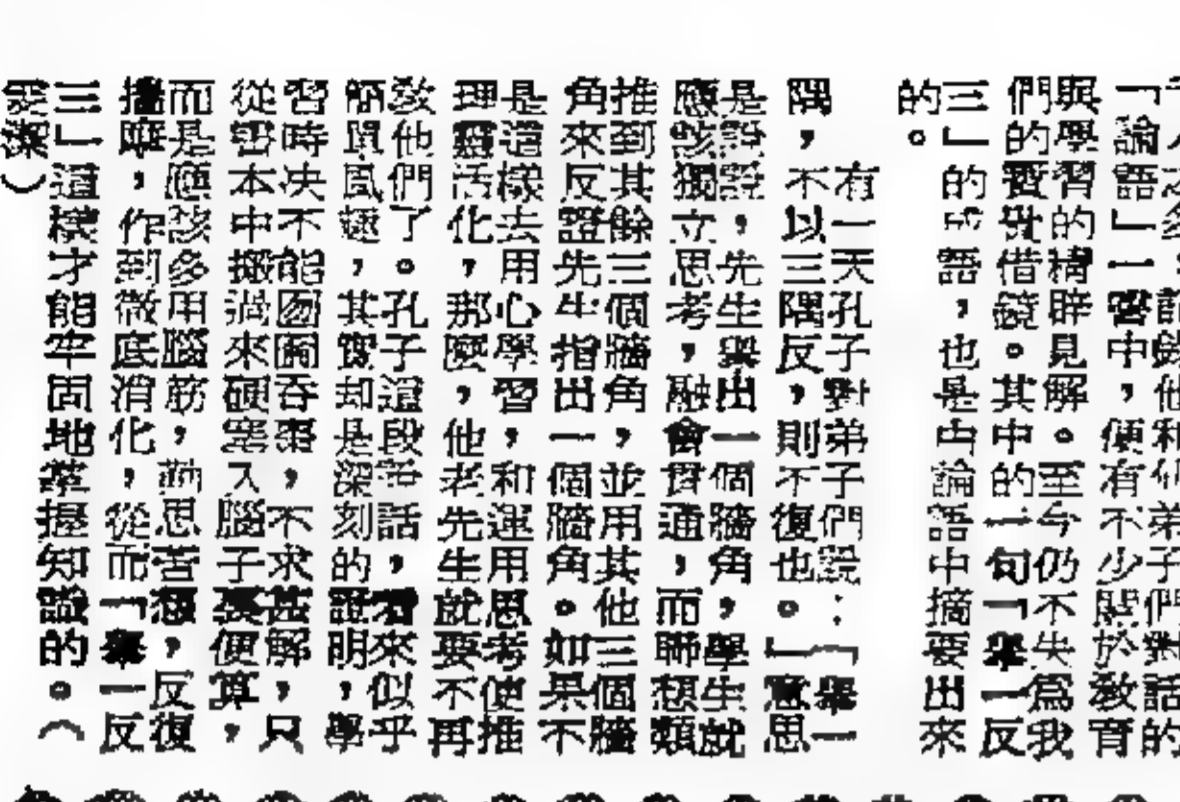 人之多;記錄他和他弟子們對話的
「論語」一書中,便有不少關於教育
與學習的精辟見解。至今仍不失爲我
們的寶貴借鏡。其中的一句「舉一反
三」的成語,也是由論語中摘要出來
的。
有一天孔子對弟子們說:「舉一
隅,不以三隅反,則不復也。」意思
是說,先生舉出一個牆角,學生就
應該獨立思考,融會貫通,而聯想類
推到其餘三個牆角,並用其他三個牆
角來反證先生指出一個牆角。如果不
是這樣去用心學習,和運用思考使推
理靈活化,那麼,他老先生就要不再
敎他們了。孔子這段話,看來似乎
簡單風趣,其實却是深刻的證明,學
習時决不能囫圇吞棗,不求甚解,只
從書本中搬過來硬塞入腦子裏便算,
而是應該多用腦筋,勤思苦想,反復
揣摩,作到徹底消化,從而「舉一反
三」這樣才能牢固地掌握知識的。(
雯潔)